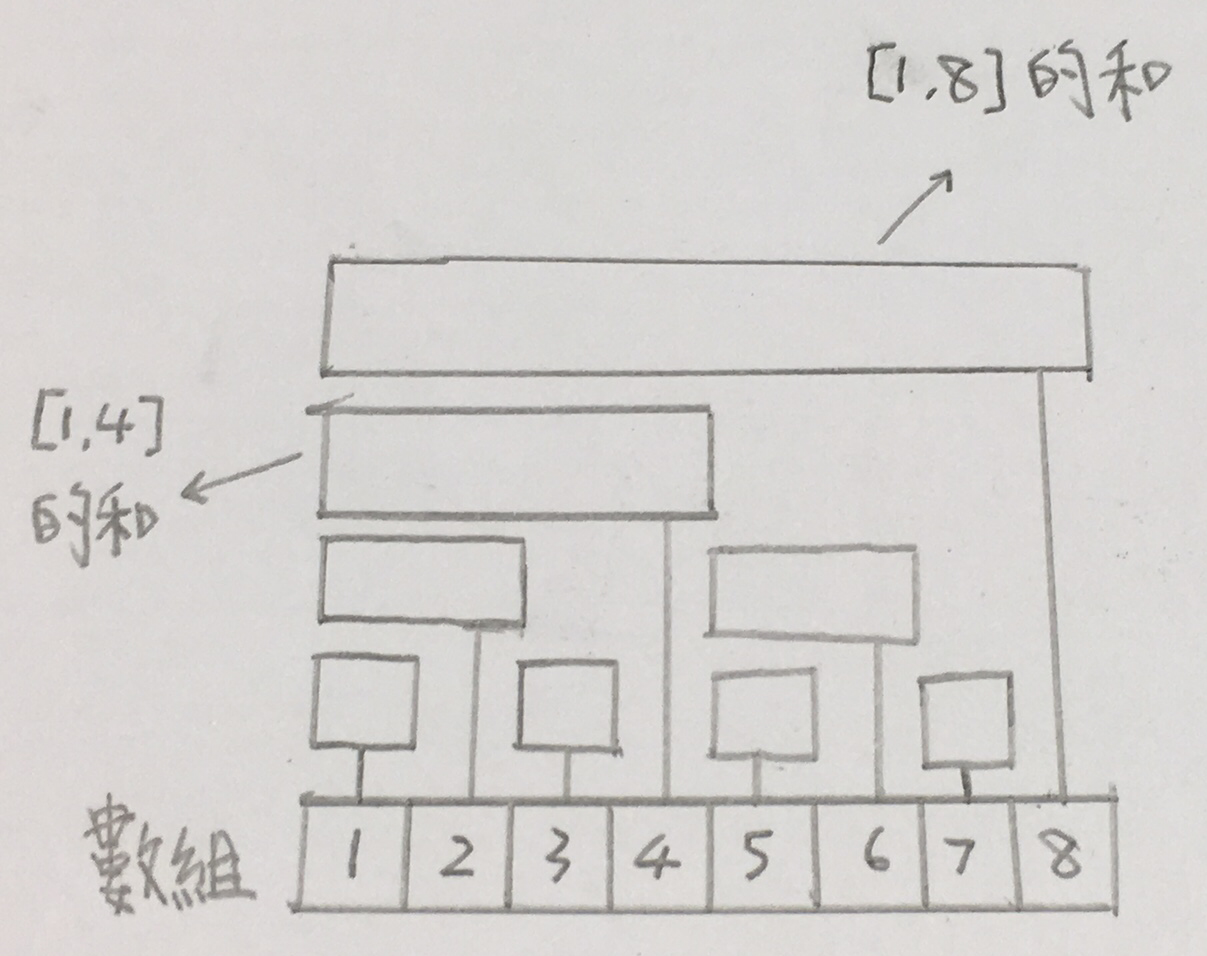 [1,8]的和
[1,4]
的和
數組 1 2 3 4 5 6 7 8